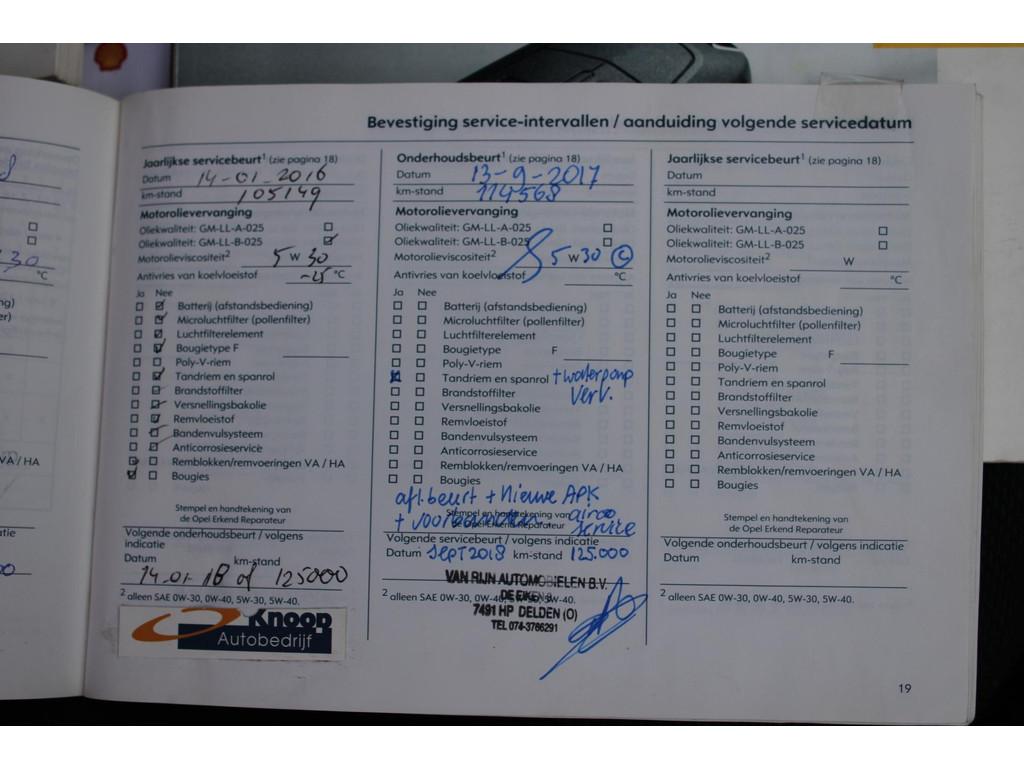 Bevestiging service-intervallen / aanduiding volgende servicedatum
Jaarlijkse servicebeurt¹ (zie pagina 18)
Datum 14-01-2016
km-stand 105149
Motorolievervanging
Oliekwaliteit: GM-LL-A-025
Oliekwaliteit: GM-LL-B-025
Motorolieviscositeit² 5 W 30
Antivries van koelvloeistof -25 °C
Ja Nee
Batterij (afstandsbediening)
Microluchtfilter (pollenfilter)
Luchtfilterelement
Bougietype F
Poly-V-riem
Tandriem en spanrol
Brandstoffilter
Versnellingsbakolie
Remvloeistof
Bandenvulsysteem
Anticorrosieservice
Remblokken/remvoeringen VA / HA
Bougies
Stempel en handtekening van
de Opel Erkend Reparateur
Volgende onderhoudsbeurt / volgens
indicatie
Datum km-stand
14-01-18 of 125000
² alleen SAE 0W-30, 0W-40, 5W-30, 5W-40.
Knoop
Autobedrijf
Onderhoudsbeurt¹ (zie pagina 18)
Datum 13-9-2017
km-stand 114568
Motorolievervanging
Oliekwaliteit: GM-LL-A-025
Oliekwaliteit: GM-LL-B-025
Motorolieviscositeit² 5 W 30 ©
Antivries van koelvloeistof °C
Ja Nee
Batterij (afstandsbediening)
Microluchtfilter (pollenfilter)
Luchtfilterelement
Bougietype F
Poly-V-riem
Tandriem en spanrol + waterpomp
Verv.
Brandstoffilter
Versnellingsbakolie
Remvloeistof
Bandenvulsysteem
Anticorrosieservice
Remblokken/remvoeringen VA / HA
Bougies
afl.beurt + Nieuwe APK
Stempel en handtekening van airco
de Opel Erkend Reparateur service
Volgende servicebeurt / volgens indicatie
Datum Sept 2018 km-stand 125.000
VAN RIJN AUTOMOBIELEN B.V.
² alleen SAE 0W-30, 0W-40, 5W-30, 5W-40.
7491 HP DELDEN (O)
TEL 074-3766291
Jaarlijkse servicebeurt¹ (zie pagina 18)
Datum
km-stand
Motorolievervanging
Oliekwaliteit: GM-LL-A-025
Oliekwaliteit: GM-LL-B-025
Motorolieviscositeit² W
Antivries van koelvloeistof °C
Ja Nee
Batterij (afstandsbediening)
Microluchtfilter (pollenfilter)
Luchtfilterelement
Bougietype F
Poly-V-riem
Tandriem en spanrol
Brandstoffilter
Versnellingsbakolie
Remvloeistof
Bandenvulsysteem
Anticorrosieservice
Remblokken/remvoeringen VA / HA
Bougies
Stempel en handtekening van
de Opel Erkend Reparateur
Volgende onderhoudsbeurt / volgens indicatie
Datum km-stand
² alleen SAE 0W-30, 0W-40, 5W-30, 5W-40.
19